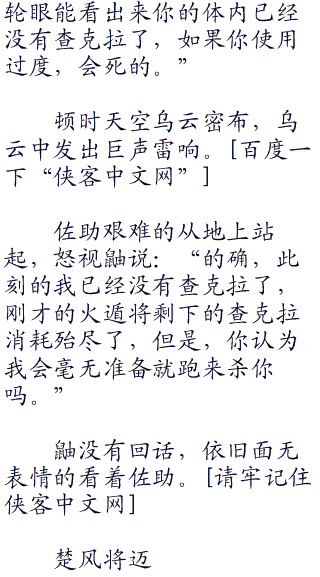 轮眼能看出来你的体内已经
没有查克拉了，如果你使用
过度，会死的。”
顿时天空乌云密布，乌
云中发出巨声雷响。[百度一
下“侠客中文网”]
佐助艰难的从地上站
起，怒视鼬说：“的确，此
刻的我已经没有查克拉了，
刚才的火遁将剩下的查克拉
消耗殆尽了，但是，你认为
我会毫无准备就跑来杀你
吗。”
鼬没有回话，依旧面无
表情的看着佐助。[请牢记住
侠客中文网]
楚风将迈